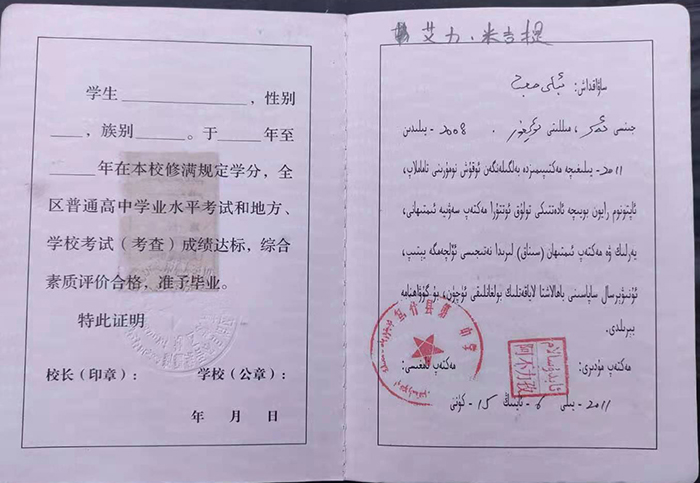 学生____________，性别
____，族别______。于____年至
______年在本校修满规定学分，全
区普通高中学业水平考试和地方、
学校考试（考查）成绩达标，综合
素质评价合格，准予毕业。
特此证明
校长（印章）： 学校（公章）：
年 月 日
艾力·米吉提
ساۋاقداش:
جىنسى ئەر ، مىللىتى ئۇيغۇر . 2008 - يىلىدىن
2011 - يىلىغىچە مەكتىپىمىزدە بەلگىلەنگەن ئوقۇش نومۇرىنى تاماملاپ،
ئاپتونوم رايون بويىچە ئادەتتىكى تولۇق ئوتتۇرا مەكتەپ سەۋىيە ئىمتىھانى،
يەرلىك ۋە مەكتەپ ئىمتىھان (سىناق) لىرىدا نەتىجىسى ئۆلچەمگە يېتىپ،
ئۇنىۋېرسال ساپاسىنى باھالاشتا لاياقەتلىك بولغانلىقى ئۈچۈن، بۇ گۇۋاھنامە
بېرىلدى.
مەكتەپ مۇدىرى: مەكتەپ تامغىسى:
2011 - يىلى 6 - ئاينىڭ 15 - كۈنى